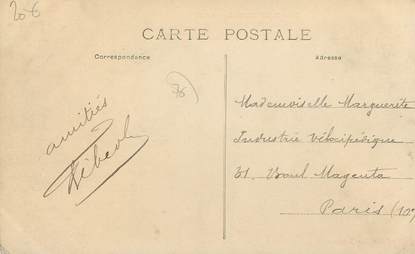 20€
CARTE POSTALE
Correspondance
Adresse
amitiés
Mademoiselle Marguerite
Industrie Vélocipédique
31. Boul Magenta
Paris (10e